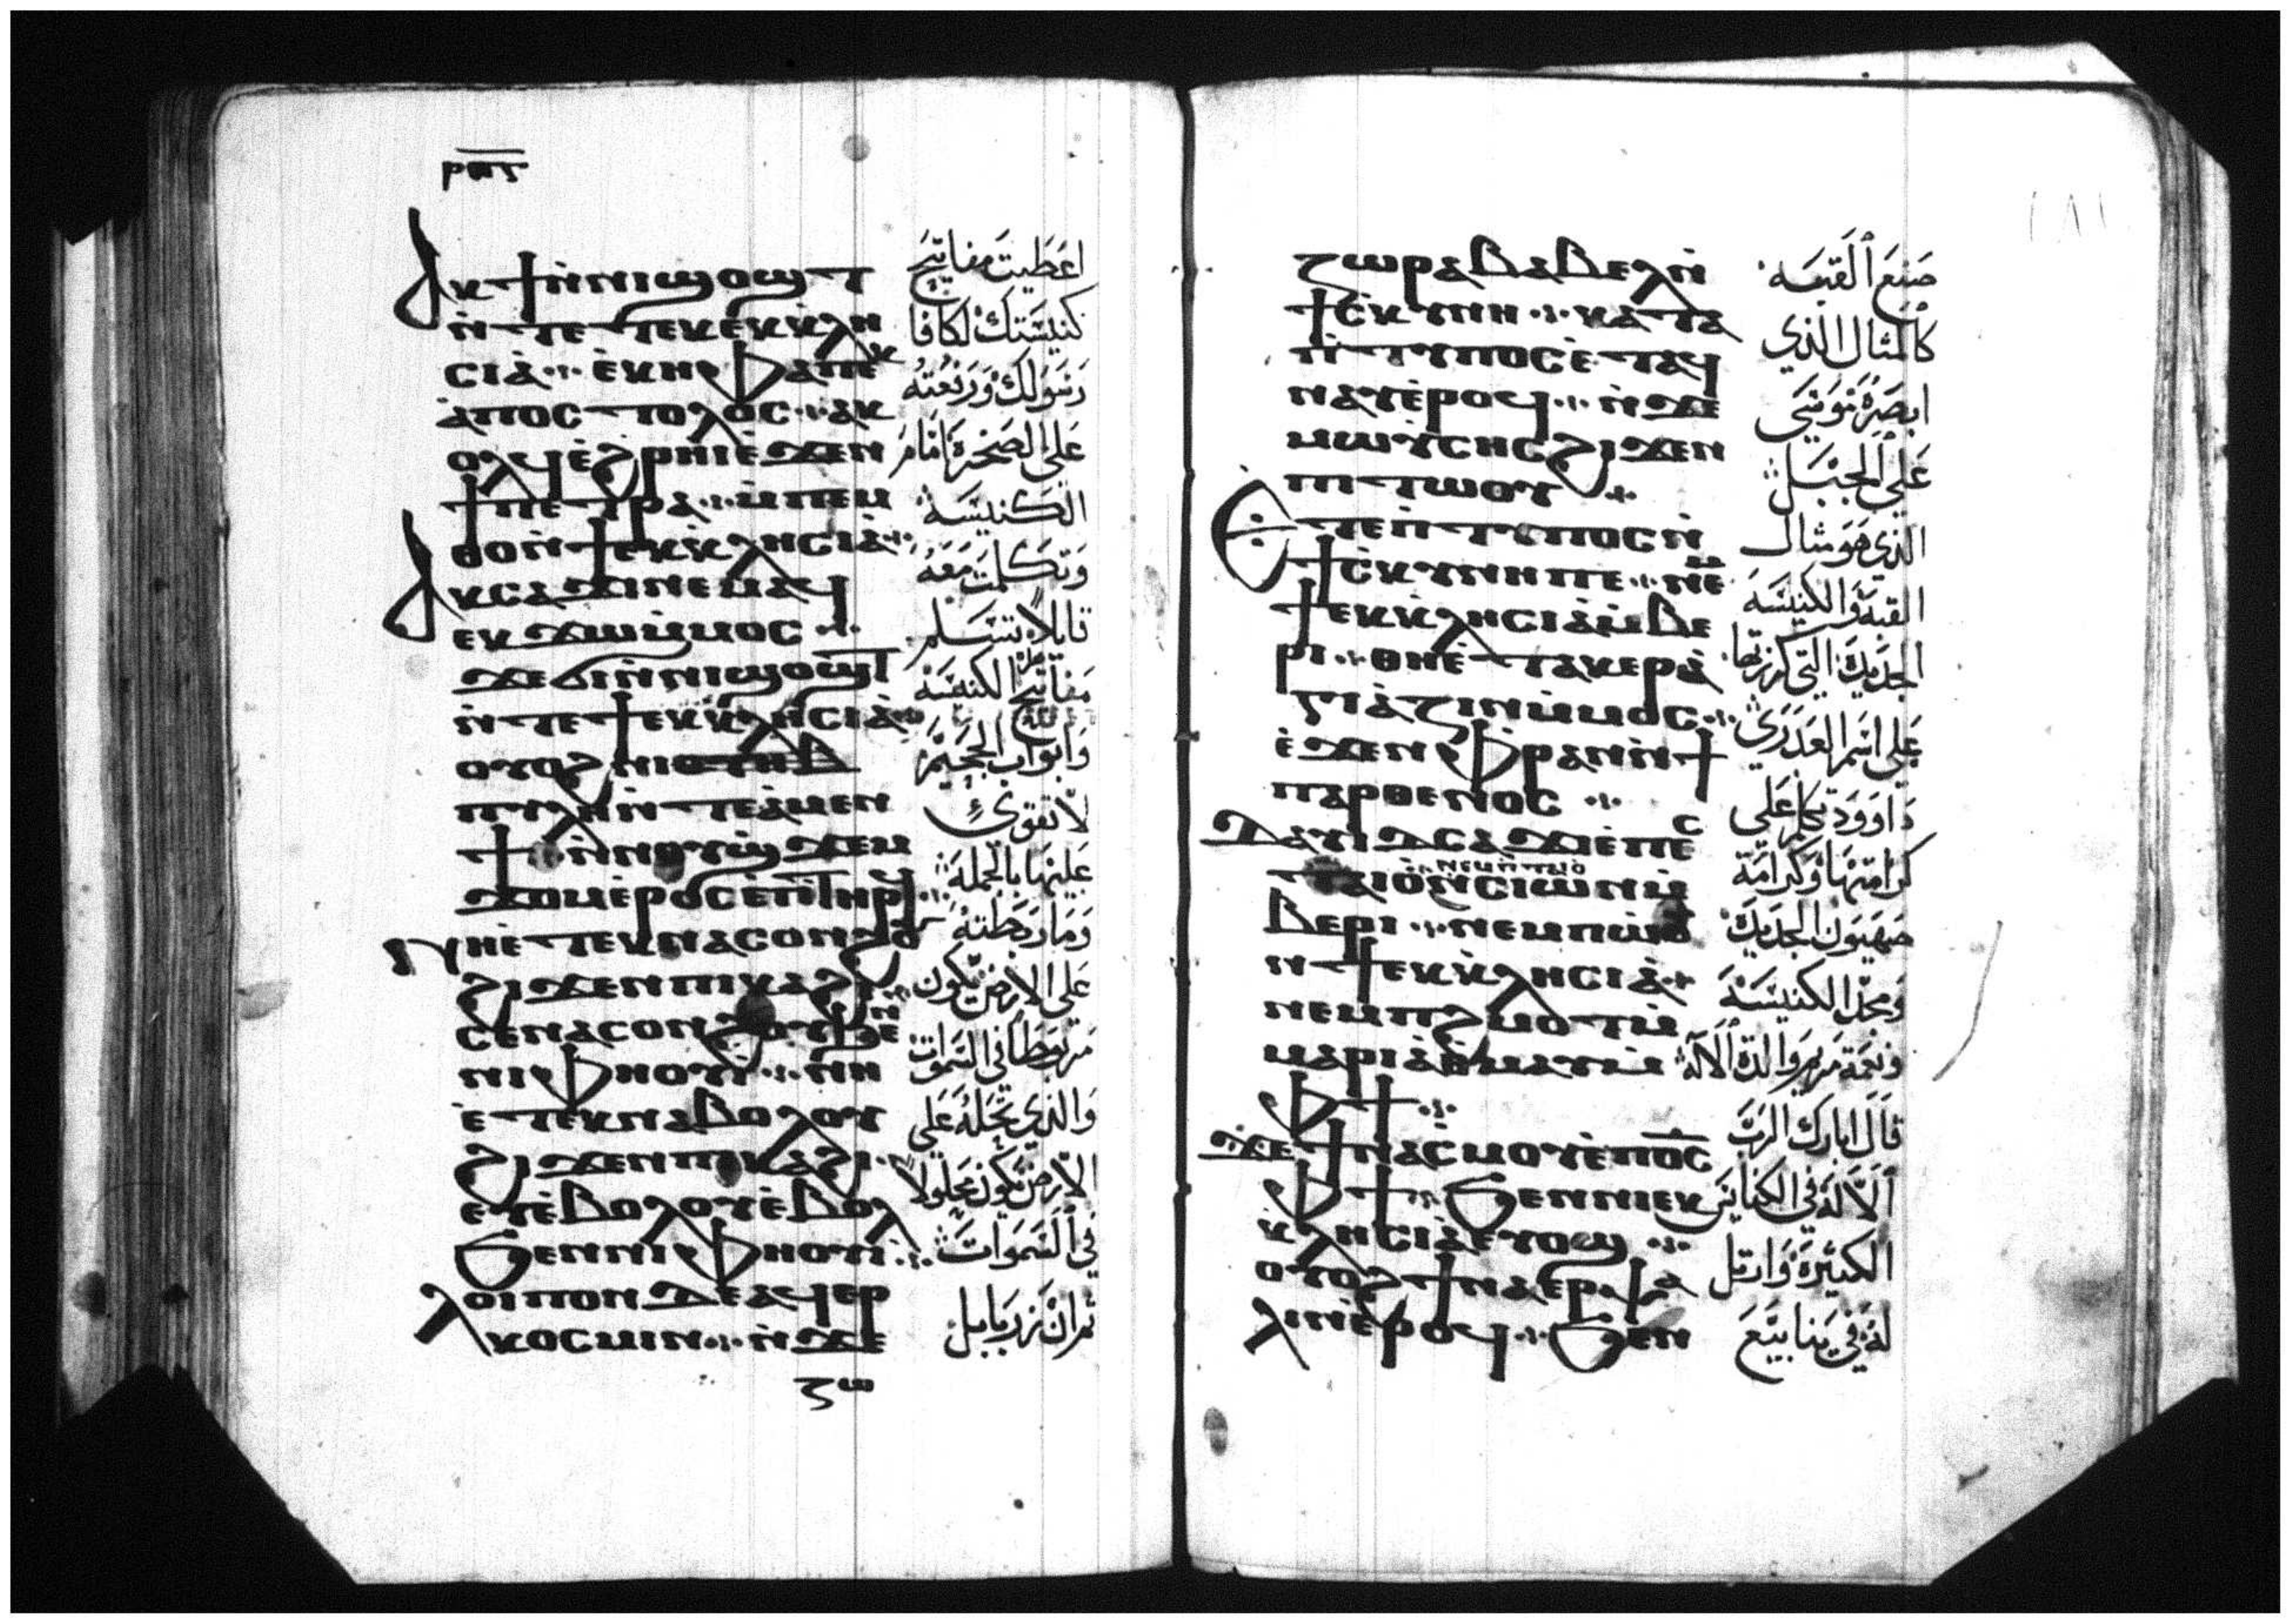 ⲁⲕϯⲛ̀ⲛⲓϣⲟϣⲧ
ⲛ̀ⲧⲉⲧⲉⲕⲉⲕⲕⲗⲏ
ⲥⲓⲁ̀ ⲉ̀ⲕⲏⲫⲁⲡⲉⲕ
ⲁ̀ⲡⲟⲥⲧⲟⲗⲟⲥ ⲁⲕ
ⲟⲗϥⲉ̀ϩⲣⲏⲓⲉ̀ϫⲉⲛ
ϯⲡⲉⲧⲣⲁ ⲙ̀ⲡⲉⲙ
ⲑⲟⲛ̀ϯⲉⲕⲕⲗⲏⲥⲓⲁ̀
ⲁⲕⲥⲁϫⲓⲛⲉⲙⲁϥ
ⲉⲕϫⲱⲙ̀ⲙⲟⲥ
ϫⲉϭⲓⲛ̀ⲛⲓϣⲟϣⲧ
ⲛ̀ⲧⲉϯⲉⲕⲕⲗⲏⲥⲓⲁ̀
ⲟⲩⲟϩ ⲛⲓ
ⲡⲩⲗⲏⲛ̀ⲧⲉⲁ̀ⲙⲉⲛ
ϯ ⲛ̀ⲛⲟⲩϣϫⲉⲙ
ϫⲟⲙⲉ̀ⲣⲟⲥⲉ̀ⲡⲧⲏⲣϥ
ⲫⲏⲉ̀ⲧⲉⲕⲛⲁⲥⲟⲛϩϥ
ϩⲓϫⲉⲛⲡⲓⲕⲁϩⲓ
ⲥⲉⲛⲁⲥⲟⲛϩⲟⲩϧⲉⲛ
ⲛⲓⲫⲏⲟⲩⲓ̀ ⲛⲏ
ⲉ̀ⲧⲉⲕⲛⲁⲃⲟⲗⲟⲩ
ϩⲓϫⲉⲛⲡⲓⲕⲁϩⲓ
ⲉⲩⲉ̀ⲃⲟⲗⲟⲩⲉ̀ⲃⲟⲗ
ϧⲉⲛⲛⲓⲫⲏⲟⲩⲓ̀
ⲗⲟⲓⲡⲟⲛⲇⲉⲁϥⲉⲣ
ⲕⲟⲥⲙⲓⲛ ⲛ̀ϫⲉ
ⲍⲱ
اعطيت مفاتيح
كنيستك لكافا
رسولك ورفعته
على الصخرة امام
الكنيسة
وتكلمت معه
قايلا تسلم
مفاتيح الكنيسة
وابواب الجحيم
لا تقوى
عليها بالجملة
وما ربطته
على الارض يكون
مربوطا في السموات
والذي تحله على
الارض يكون محلولا
في السموات
ثم ان زربابيل
ⲍⲱⲣⲁⲃⲁⲃⲉⲗⲛ̀
ϯⲥⲕⲩⲛⲏ ⲕⲁⲧⲁ
ⲡ̀ⲧⲩⲡⲟⲥⲉ̀ⲧⲁϥ
ⲛⲁⲩⲉ̀ⲣⲟϥ ⲛ̀ϫⲉ
ⲙⲱⲩ̀ⲥⲏⲥϩⲓϫⲉⲛ
ⲡⲓⲧⲱⲟⲩ
ⲉⲧⲉⲡ̀ⲧⲩⲡⲟⲥⲛ̀
ϯⲥⲕⲩⲛⲏⲡⲉ ⲛⲉⲙ
ϯⲉⲕⲕⲗⲏⲥⲓⲁ̀ⲙ̀ⲃⲉ
ⲣⲓ ⲑⲏⲉ̀ⲧⲁⲕⲉⲣⲁ̀
ⲅⲓⲁ̀ⲍⲓⲛⲙ̀ⲙⲟⲥ
ⲉ̀ϫⲉⲛⲫⲣⲁⲛⲛ̀ϯ
ⲡⲁⲣⲑⲉⲛⲟⲥ
ⲇⲁⲩⲓⲇⲥⲁϫⲓⲉ̀ⲡⲉⲥ
ⲧⲁⲓⲟ̀ ⲛⲉⲙⲡ̀ⲧⲁⲓⲟ̀ ⲛⲥⲓⲱⲛⲙ̀
ⲃⲉⲣⲓ ⲛⲉⲙⲡⲱ̀ⲟⲩ
ⲛ̀ϯⲉⲕⲕⲗⲏⲥⲓⲁ̀
ⲛⲉⲙⲡϩⲙⲟⲧⲙ̀
ⲙⲁⲣⲓⲁ̀ⲑⲙⲁⲩⲙ̀
ⲫϯ
ϫⲉϯⲛⲁⲥⲙⲟⲩⲉ̀ⲡⲟ̅ⲥ̅
ⲫϯ ϧⲉⲛⲛⲓⲉⲕ
ⲕⲗⲏⲥⲓⲁ̀ⲉⲩⲟϣ
ⲟⲩⲟϩϯⲛⲁⲉⲣⲯⲁ
ⲗⲓⲛⲉ̀ⲣⲟϥ ϧⲉⲛ
صنع القبه
كالمثال الذي
ابصره موسى
على الجبل
الذي هو مثال
القبة والكنيسة
الجديدة التي كرزتها
على اسم العذري
داوود تكلم على
كرامتها وكرامة
صهيون الجديدة
ومجد الكنيسة
ونعمة مريم والدة الاله
قال ابارك الرب
الاله في الكنايس
الكثيرة وارتل
له في ينابيع